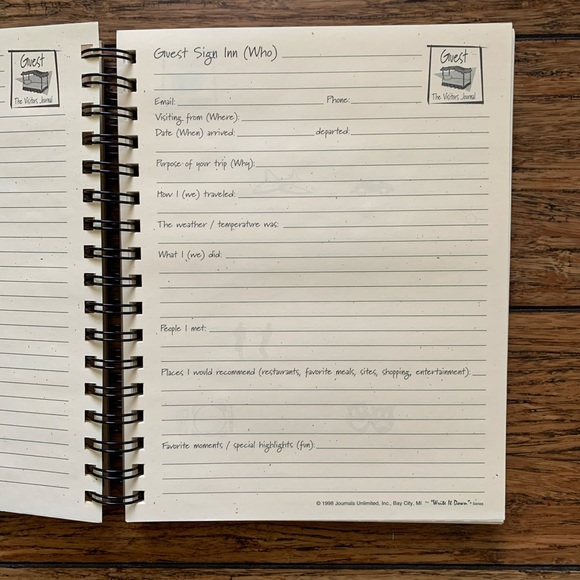 Guest
The Visitors Journal
Guest Sign Inn (Who)
Guest
The Visitors Journal
Email: Phone:
Visiting from (Where):
Date (When) arrived: departed:
Purpose of your trip (Why):
How I (we) traveled:
The weather / temperature was:
What I (we) did:
People I met:
Places I would recommend (restaurants, favorite meals, sites, shopping, entertainment):
Favorite moments / special highlights (fun):
© 1998 Journals Unlimited, Inc., Bay City, MI ~ "Write It Down" ~ Series